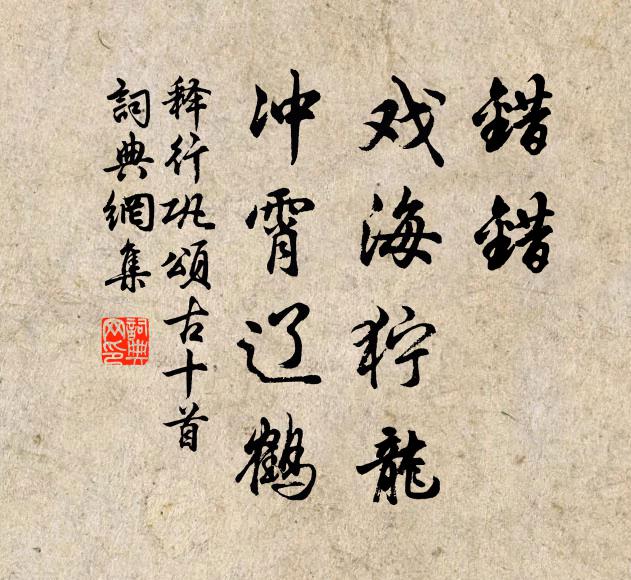 錯錯
戏海狞龍
冲霄辽鶴
释行巩頌古十首
詞典網集
詞典
网印